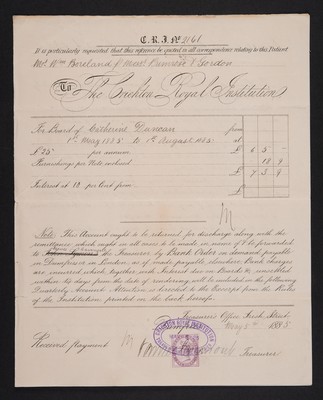 C.R.I. No 2161
It is particularly requested that this reference be quoted in all correspondence relating to this Patient
Mr. Wm Boreland of Messrs Primrose & Gordon
To The Crichton Royal Institution
For Board of Catherine Duncan from
1st May 1885 to 1st August 1885 at
£ 25 per annum £ 6 5 -
Furnishings per Note enclosed 18 9
£ 7 3 9
Interest at 10 per Cent from
Note. This Account ought to be returned for discharge along with the
remittance which ought in all cases to be made in
the Treasurer by Bank Order on demand payable
in Dumfries or in London; as if made payable elsewhere Bank charges
are incurred which, together with Interest due on Boards &c unsettled
within 14 days from the date of rendering will be included in the following
Quarterly Account. Attention is directed to the Excerpt from the Rules
of the Institution printed on the back hereof.
Treasurer's Office, Irish Street
Dumfries, May 2nd 1885
CRICHTON ROYAL INSTITUTION
Received payment
Treasurer